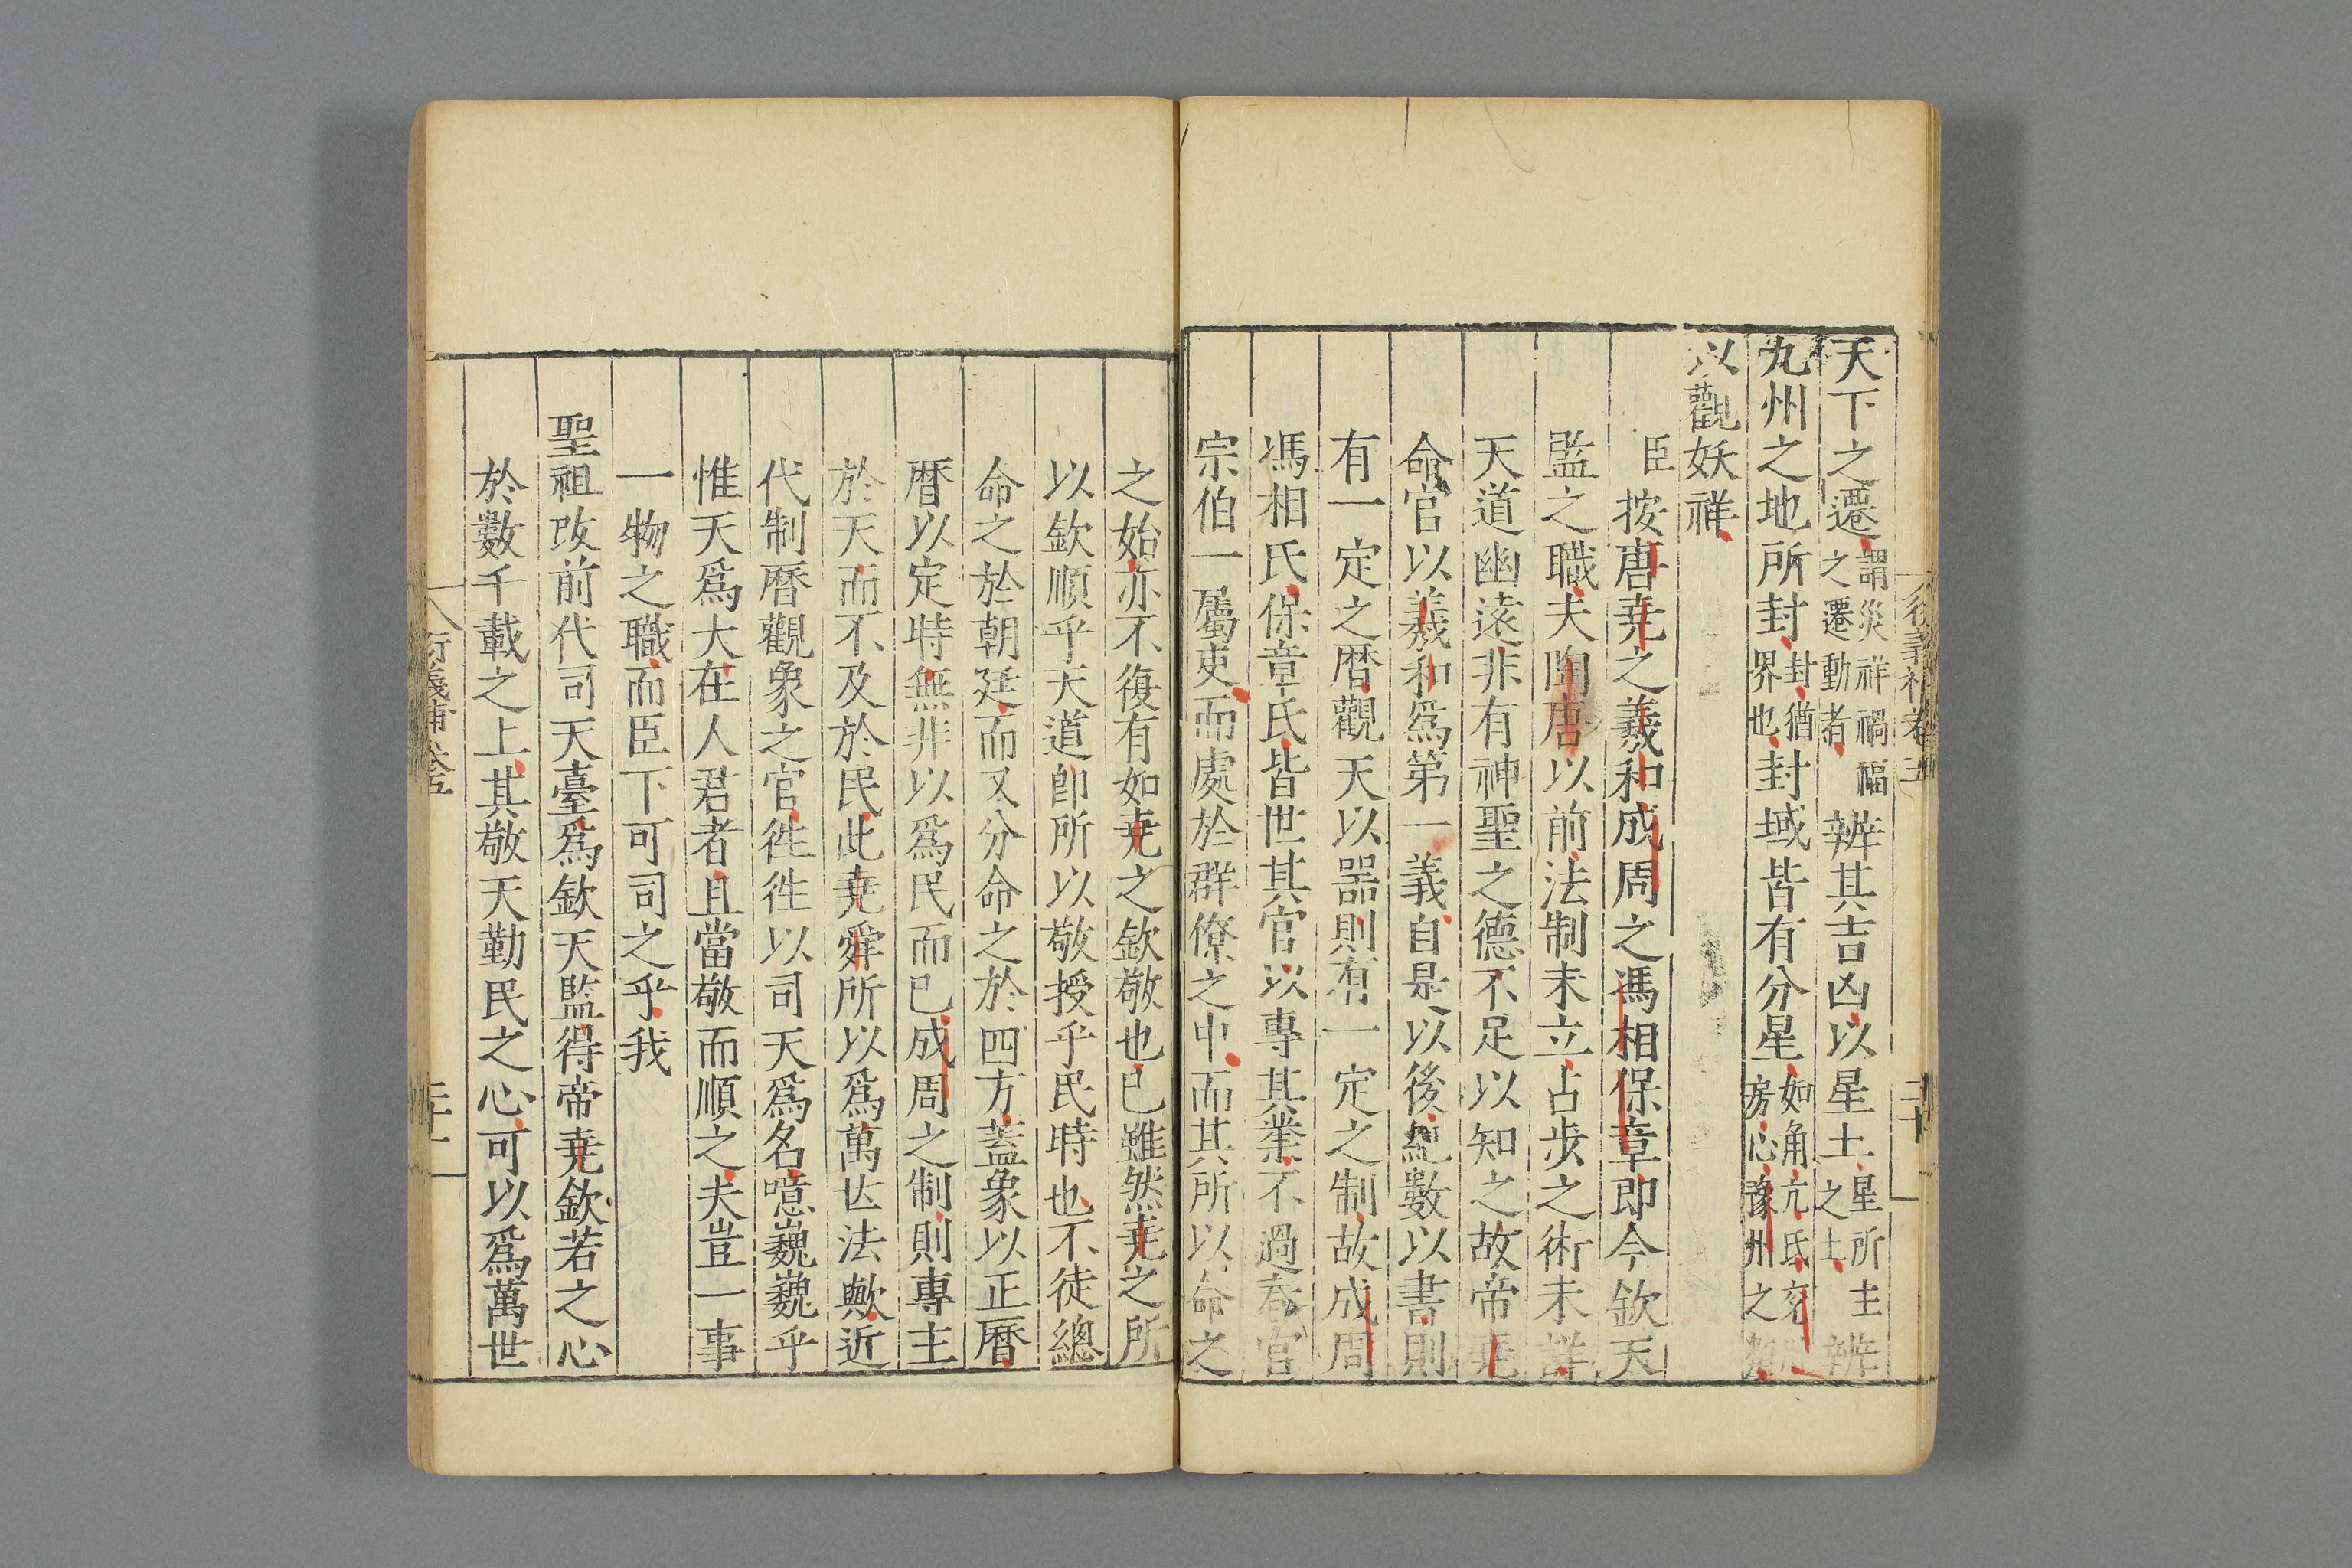 天下之遷謂災祥禍福之遷動者辨其吉凶以星土星所主之土辨
九州之地所封封猶界也封域皆有分星如角亢氐兗州房心豫州之類
以觀妖祥
臣按唐堯之羲和成周之馮相保章即今欽天
監之職夫陶唐以前法制未立占步之術未詳
天道幽遠非有神聖之德不足以知之故帝堯
命官以羲和爲第一義自是以後紀數以書則
有一定之曆觀天以器則有一定之制故成周
馮相氏保章氏皆世其官以專其業不過春官
宗伯一屬吏而處於群僚之中而其所以命之
衍義補卷五
二十
之始亦不復有如堯之欽敬也已雖然堯之所
以欽順乎天道即所以敬授乎民時也不徒總
命之於朝廷而又分命之於四方蓋象以正曆
曆以定時無非以爲民而已成周之制則專主
於天而不及於民此堯舜所以爲萬世法歟近
代制曆觀象之官徃徃以司天爲名噫巍巍乎
惟天爲大在人君者且當敬而順之夫豈一事
一物之職而臣下可司之乎我
聖祖改前代司天臺爲欽天監得帝堯欽若之心
於數千載之上其敬天勤民之心可以爲萬世
衍義補卷五